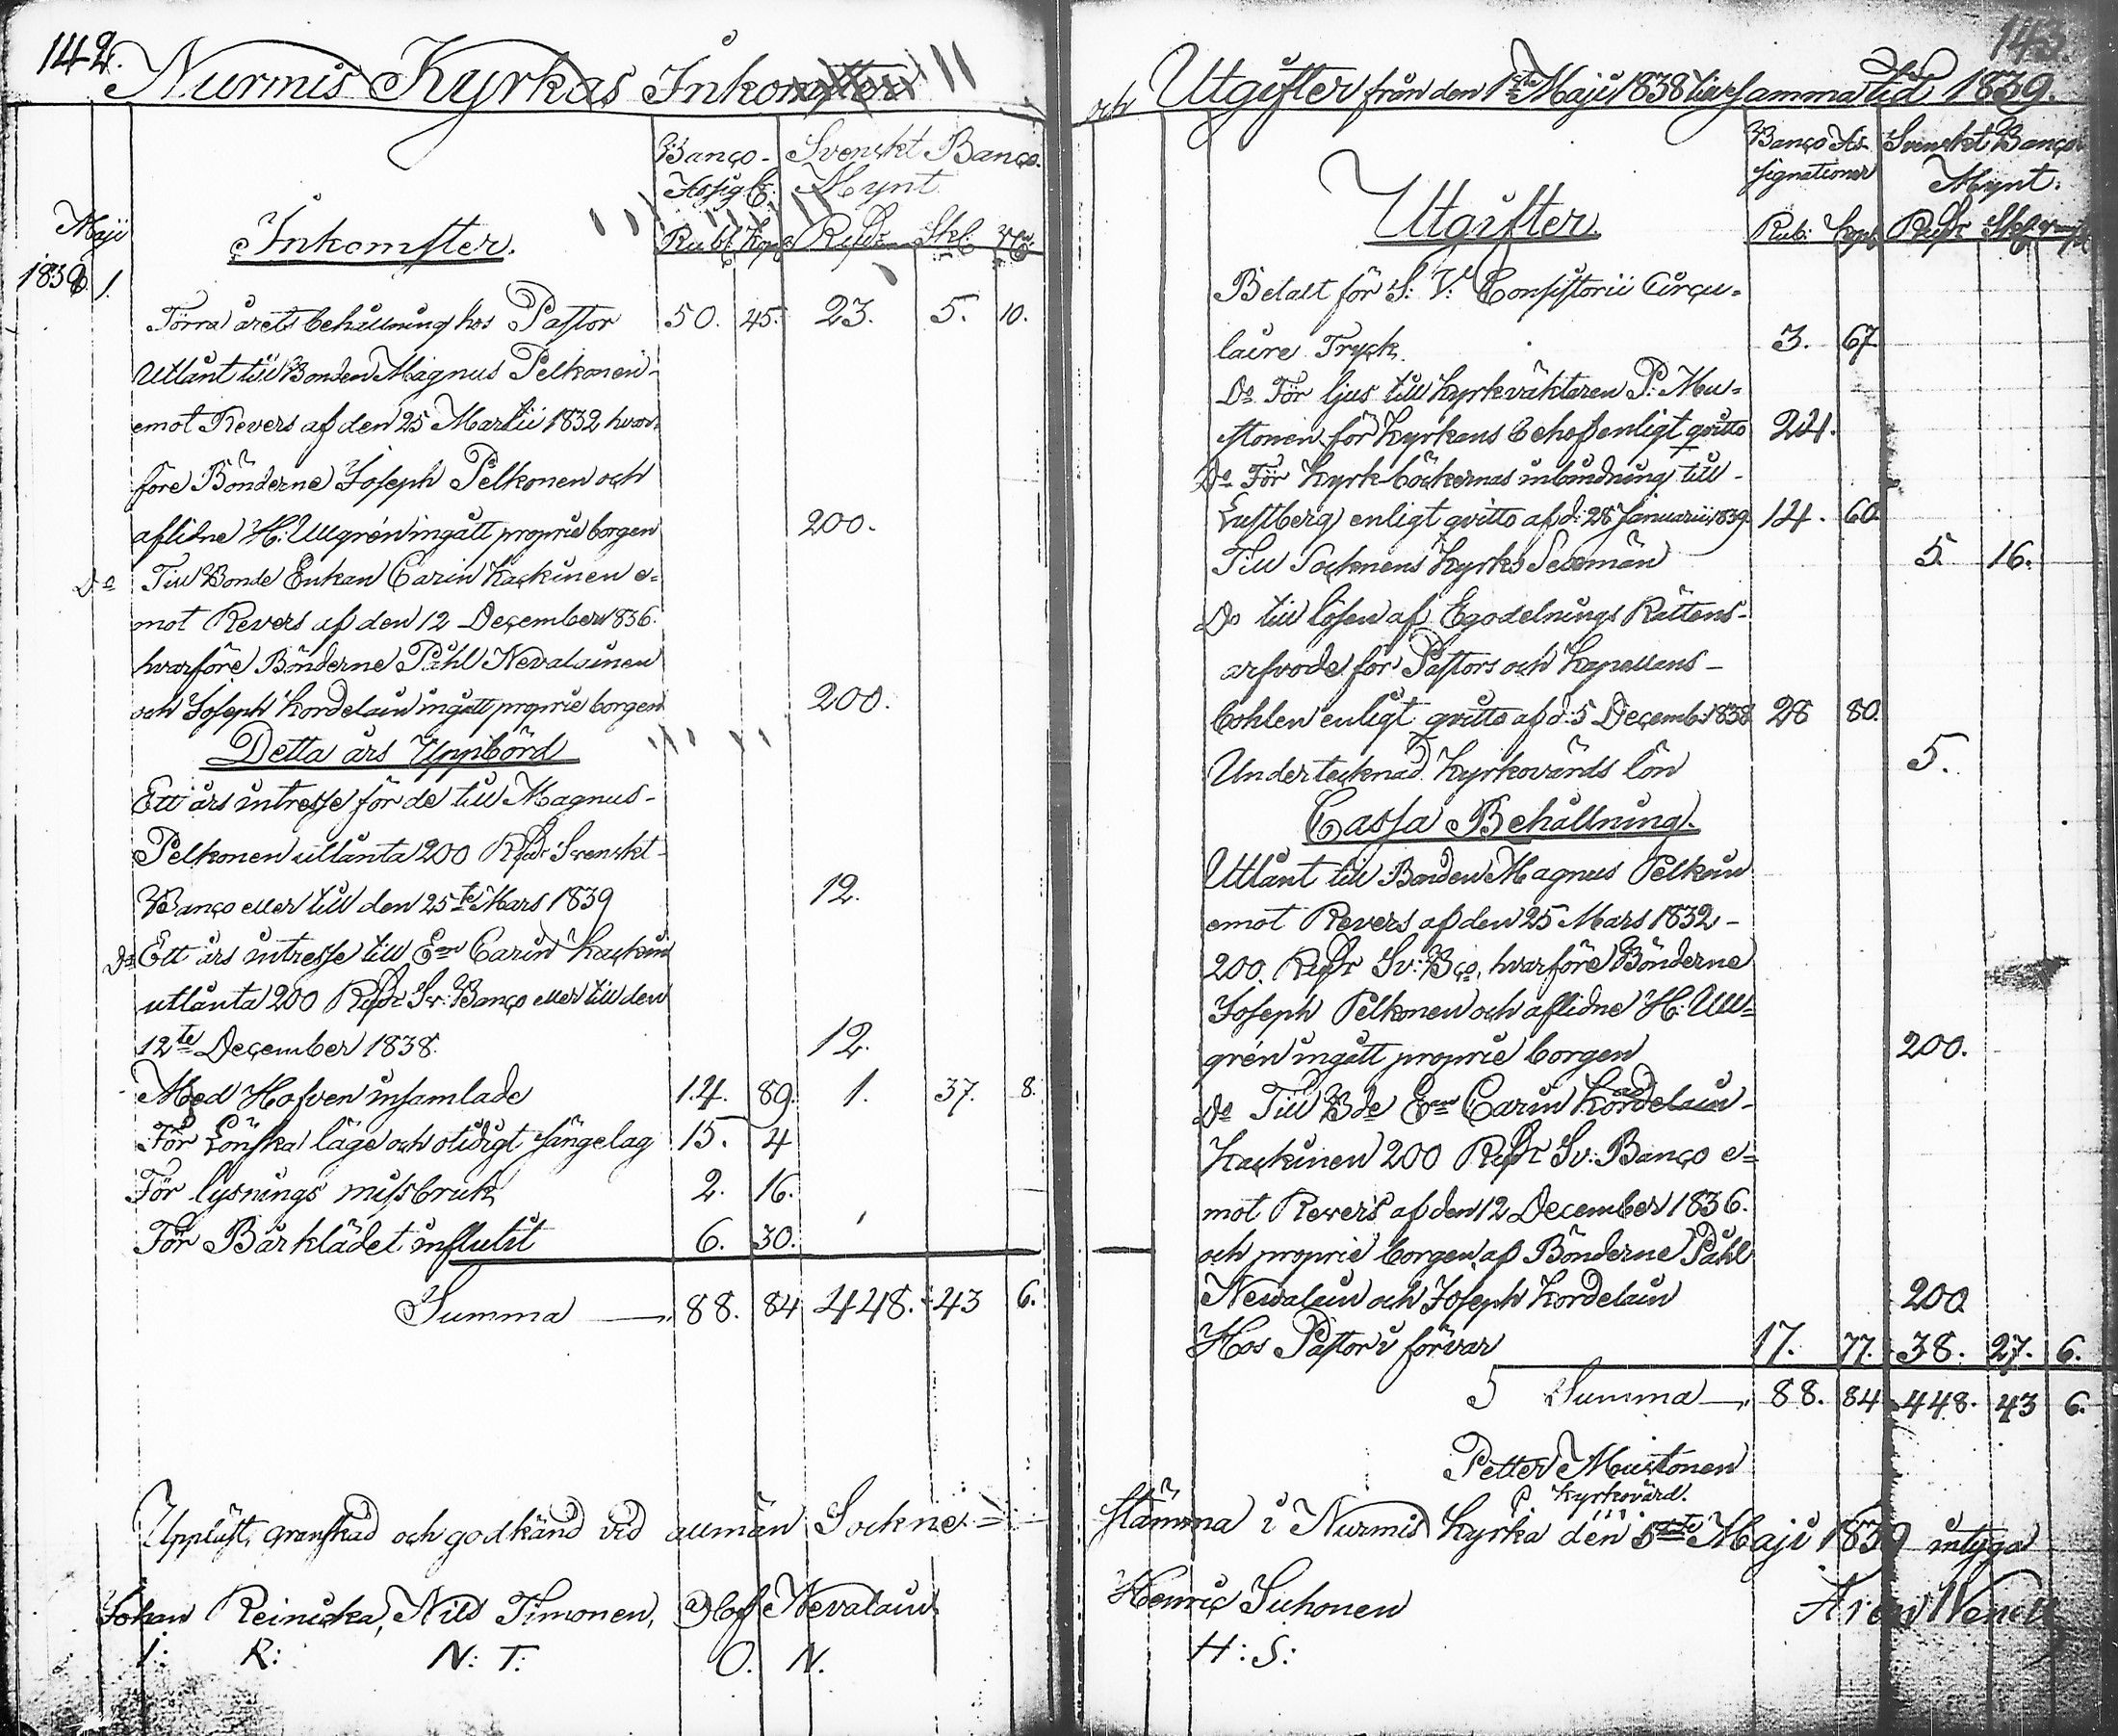 142.
Nurmis Kyrkas Inkomster
Banço- Svenskt Banço
Assigt: Mynt
Maji Inkomster. Rubl: Kop: Rdr Skl:
1838 1.
Förra årets behållning hos Pastor 50. 45. 23. 5. 10.
Utlånt till Bonden Magnus Pelkonen-
emot Revers af den 25 Martii 1832 hvar-
före Bönderne Joseph Pelkonen och
aflidne H: Ullgrén ingått proprie borgen 200.
Do Till Bonde Enkan Carin Kaçkinen e=
mot Revers af den 12 Deçember 1836.
hvarföre Bönderne Påhl Nevalainen
och Joseph Kordelain ingått proprie borgen 200.
Detta års Uppbörd
Ett års intresse för de till Magnus-
Pelkonen utlånta 200 Rdr Svenskt-
Banço eller till den 25te Mars 1839 12.
Do Ett års intresse till Enn Carin Kaçkin
utlånta 200 Rdr Sv: Banço eller till den
12te Deçember 1838. 12.
Med Hofven insamlade 14. 89. 1. 37. 8.
För Lönska läge och otidigt sängelag 15. 4
För lysnings missbruk 2. 16.
För Bårklädet influtit 6. 30.
Summa 88. 84 448. 43 6.
Uppläst, granskad och godkänd vid allmän Sockne=
Johan Reiniçka, Nils Timonen, Olof Nevalain
I: R: N: T: O. N.
143.
och Utgifter från den 1sta Maji 1838 till samma tid 1839.
Banço As- Svenskt Banço
signationer Mynt.
Utgifter. Rub: Kop: Rdr Skl:
Betalt för S: V: Consistorii Cirçu=
laire Tryçk. 3. 67.
Do För ljus till Kyrkväkteren P: Mu=
stonen för Kyrkans behof enligt qvitto 24.
Do För Kyrk-böckernas inbindning till-
Lustberg enligt qvitto af d: 28 Januarii 1839 14. 60.
Till Soçknens Kyrko Sexmän 5. 16.
Do till lösen af Egodelnings Rättens-
arfvode för Pastors och Kapellans-
bohlen enligt qvitto af d: 5 Deçemb: 1838 28 80.
Undertecknad Kyrkovärds lön 5.
Cassa Behållning.
Utlånt till Bonden Magnus Pelkoin
emot Revers af den 25 Mars 1832-
200. Rdr Sv: Bço, hvarföre Bönderne
Joseph Pelkonen och aflidne H: Ull=
grén ingått proprie borgen 200.
Do Till Bde Enn Carin Kordelain-
Kaçkinen 200 Rdr Sv: Banço e=
mot Revers af den 12 December 1836.
och proprie borgen af Bönderne Påhl
Newalain och Joseph Kordelain 200
Hos Pastor i förvar 17. 77. 38. 27. 6.
Summa 88. 84 448. 43 6.
Petter Mustonen
Kyrkovärd.
stämma i Nurmis Kyrka den 5te Maji 1839 intyga
Henriç Suhonen
H: S: